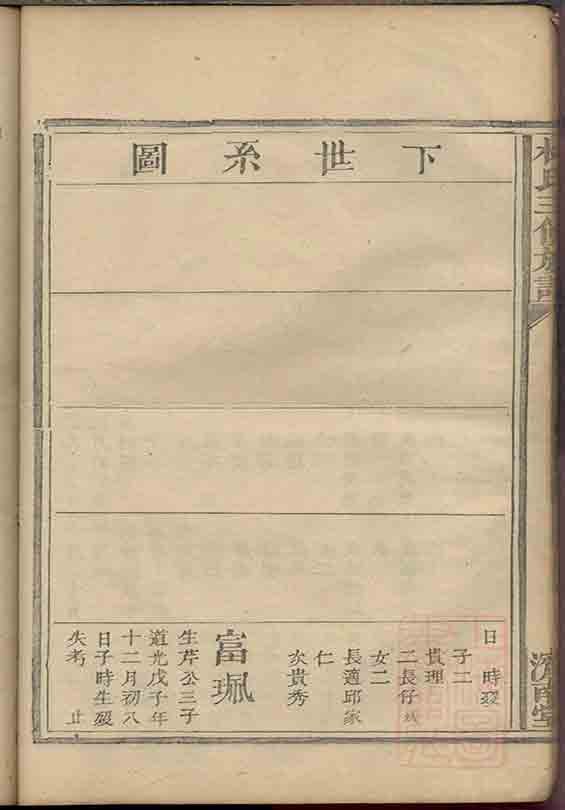 氏三修族譜
濟南堂
下世系圖
日 時歿
子二
貴理
二長仔
女二
長適邱家
仁
次貴秀
富珮
生芹公三子
道光戊子年
十二月初八
日子時生歿
失考 止